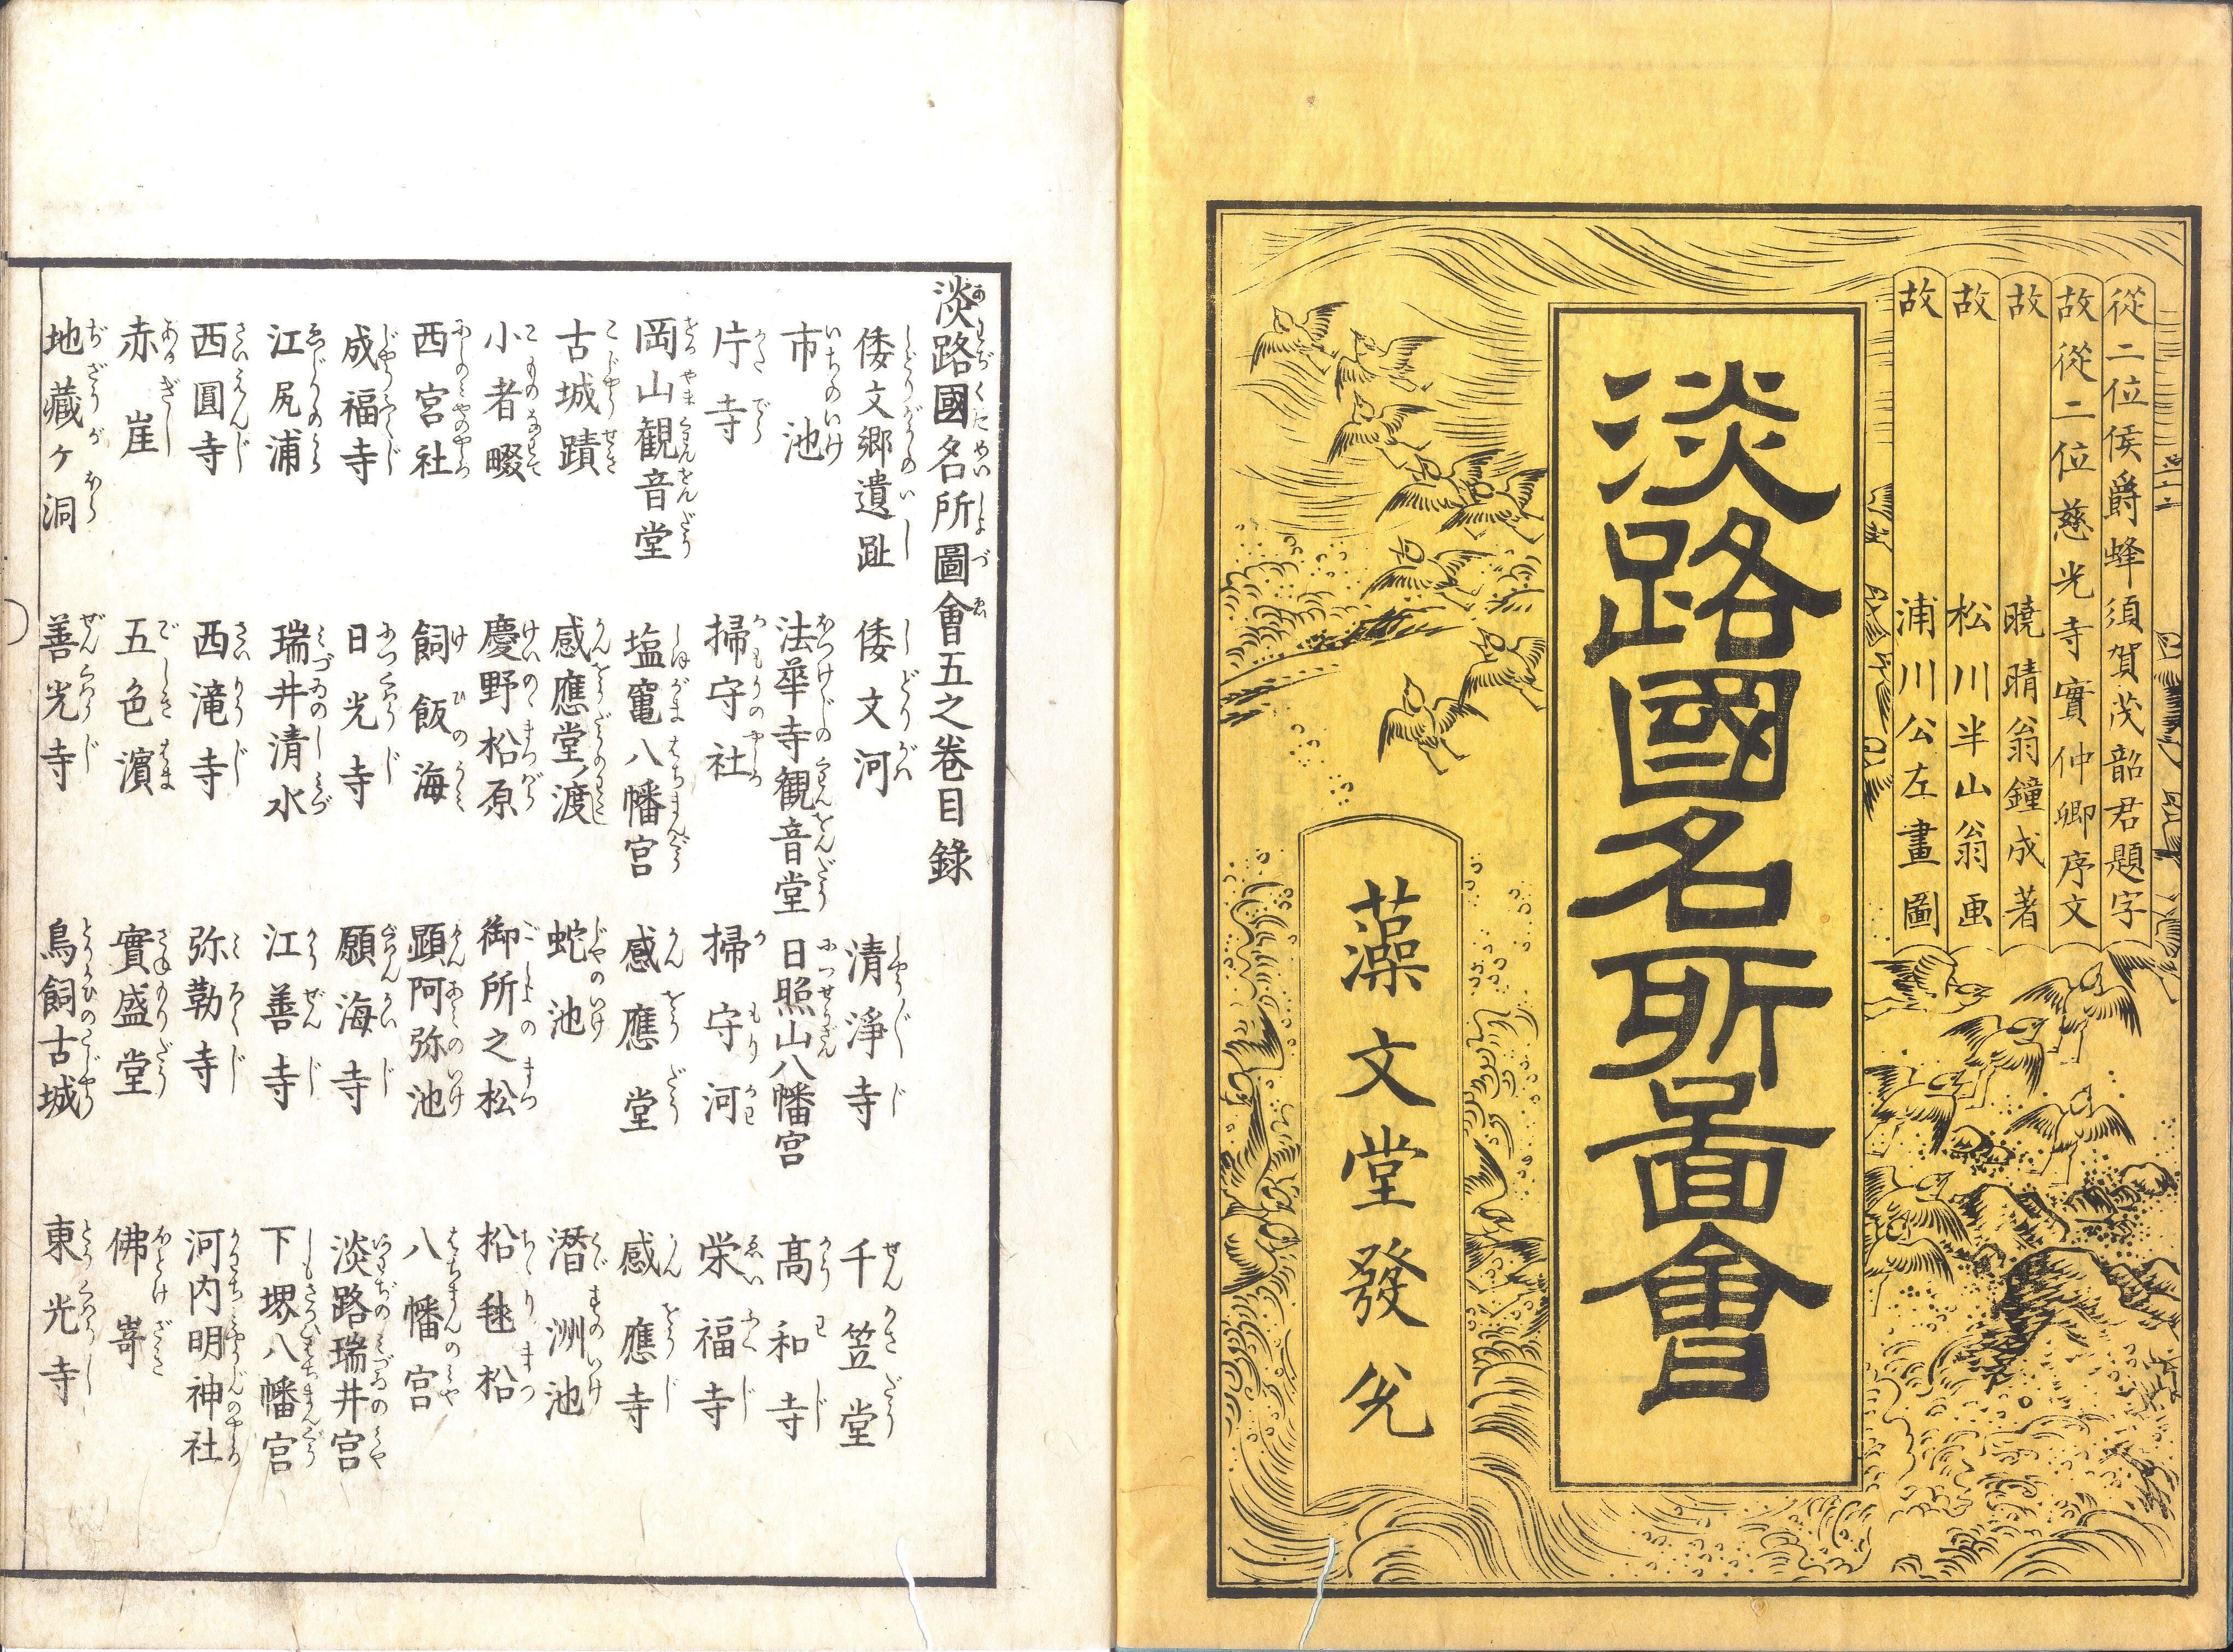 從二位侯爵蜂須賀茂韶君題字
故從二位慈光寺實仲卿序文
故 曉晴翁鐘成著
故 松川半山翁画
故 浦川公左畫圖
淡路國名所圖會
藻文堂發兌
淡路國名所圖會五之巻目録
倭文郷遺趾 倭文河 清淨寺 千笠堂
市池 法華寺観音堂 日照山八幡宮 髙和寺
庁寺 掃守社 掃守河 栄福寺
岡山観音堂 塩竃八幡宮 感應堂 感應寺
古城蹟 感應堂ノ渡 蛇池 潛洲池
小者畷 慶野松原 御所之松 松毬松
西宮社 飼飯海 顕阿弥池 八幡宮
成福寺 日光寺 願海寺 淡路瑞井宮
江尻浦 瑞井清水 江善寺 下堺八幡宮
西圓寺 西滝寺 弥勒寺 河内明神社
赤崖 五色濵 實盛堂 佛嵜
地藏ヶ洞 善光寺 鳥飼古城 東光寺